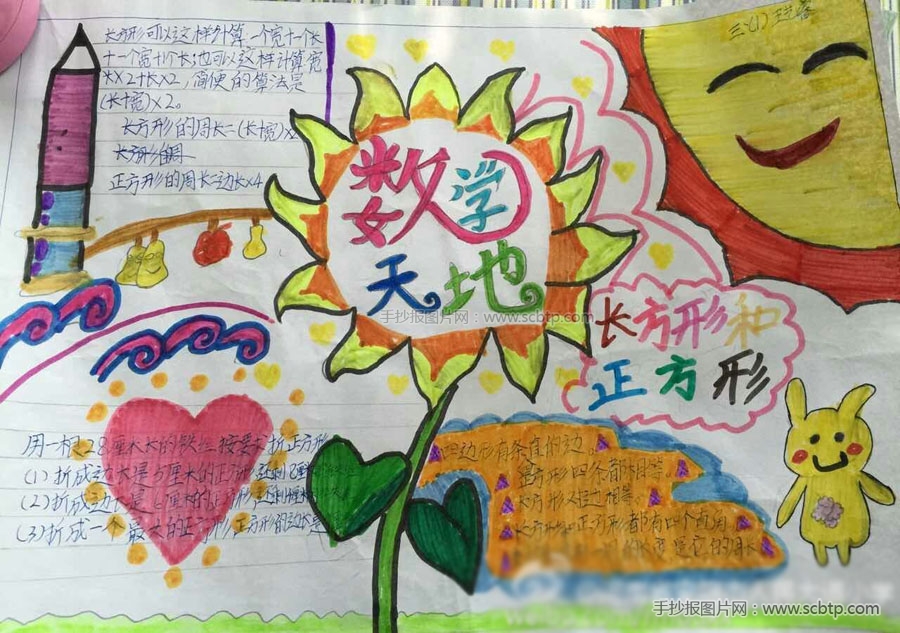 三(1)
长方形可以这样计算一个宽十一个长
十一个宽十个长,也可以这样计算宽
长×2十长×2,简便的算法是
(长十宽)×2。
长方形的周长=(长十宽)×2
长方形的周
正方形的周长=边长×4
数学
天地
长方形和
正方形
手抄报图片网:www.scbtp.com
用一根28厘米长的铁丝按要求折正方形
(1)折成边长是5厘米的正方形
(2)折成边长是 厘米的正方形
(3)折成一个最大的正方形,正方形的边长是
四边形有条直的边。
正方形四条都相等。
长方形对边相等。
长方形和正方形都有四个直角
的长度是它的周长
手抄报图片网:www.scbtp.com